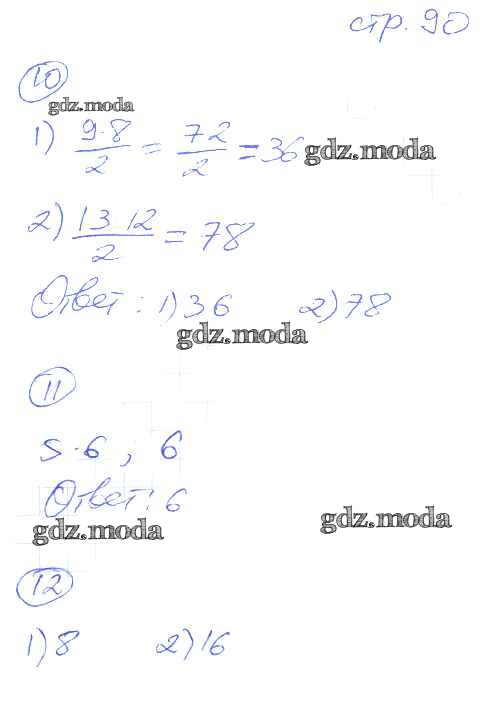 стр. 90
10
gdz.moda
1) 9·8/2 = 72/2 = 36
gdz.moda
2) 13 12/2 = 78
Ответ: 1) 36 2) 78
gdz.moda
11
5·6 ; 6
Ответ: 6
gdz.moda
gdz.moda
12
1) 8 2) 16